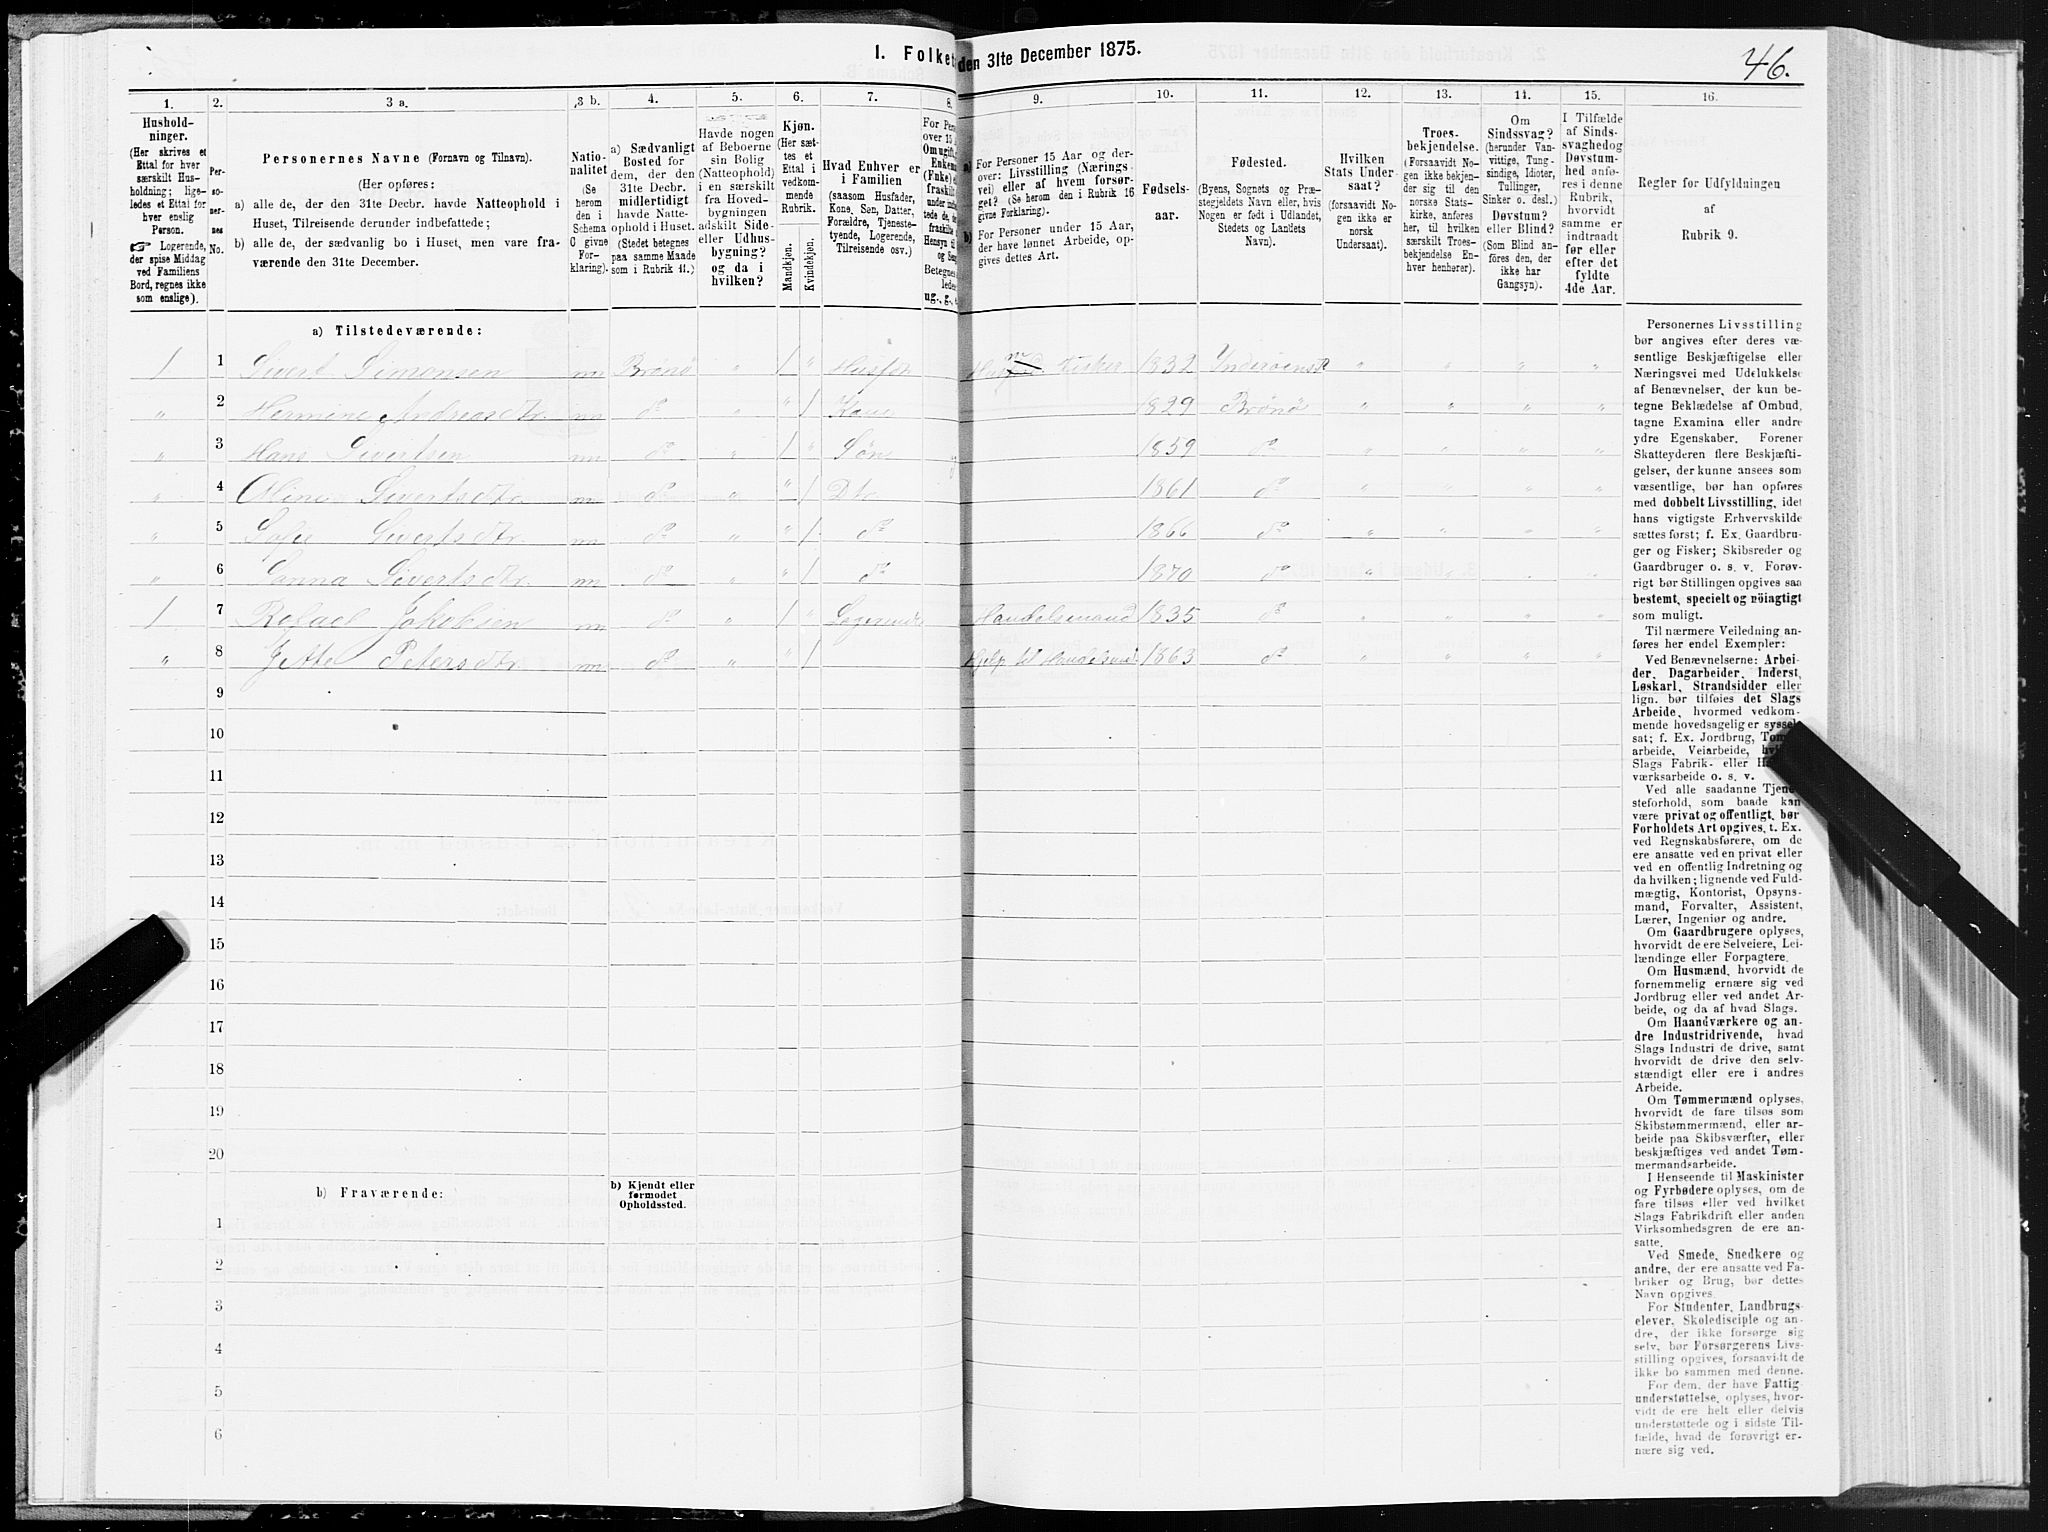 1. Folket
den 31te December 1875.
46.
1.
2.
3 a.
3 b.
4.
5.
6.
7.
8.
9.
10.
11.
12.
13.
14.
15.
16.
Hushold-
ninger.
(Her skrives et
Ettal for hver
særskilt Hus-
holdning; lige-
ledes et Ettal for
hver enslig
Person.
☞ Logerende,
der spise Middag
ved Familiens
Bord, regnes ikke
som enslige).
Per-
so-
ner-
nes
No.
Personernes Navne (Fornavn og Tilnavn).
(Her opføres:
a) alle de, der den 31te Decbr. havde Natteophold i
Huset, Tilreisende derunder indbefattede;
b) alle de, der sædvanlig bo i Huset, men vare fra-
værende den 31te December.
Natio-
nalitet
(Se
herom
den i
Schema
C givne
For-
klaring).
a) Sædvanligt
Bosted for
dem, der den
31te Decbr.
midlertidigt
havde Natte-
ophold i Huset.
(Stedet betegnes
paa samme Maade
som i Rubrik 11.)
Havde nogen
af Beboerne
sin Bolig
(Natteophold)
i en særskilt
fra Hoved-
bygningen
adskilt Side-
eller Udhus-
bygning?
og da i
hvilken?
Kjøn.
(Her sæt-
tes et
Ettal i
vedkom-
mende
Rubrik.
Mandkjøn.
Kvindekjøn.
Hvad Enhver er
i Familien
(saasom Husfader,
Kone, Søn, Datter,
Forældre, Tjeneste-
tyende, Logerende,
Tilreisende osv.)
For Pers
over 15
Omugift,
Enkem
(Fuke)
fraskilt
under
tede de,
fraskilte
Hensyn til
og
Betegnes
ledes
ug., g.,
a)
For Personer 15 Aar og der-
over: Livsstilling (Nærings-
vei) eller af hvem forsør-
get? (Se herom den i Rubrik 16
givne Forklaring).
b)
For Personer under 15 Aar,
der have lønnet Arbeide, op-
gives dettes Art.
Fødsels-
aar.
Fødested.
(Byens, Sognets og Præ-
stegjeldets Navn eller, hvis
Nogen er født i Udlandet,
Stedets og Landets
Navn).
Hvilken
Stats Under-
saat?
(forsaavidt No-
gen ikke er
norsk
Undersaat).
Troes-
bekjendelse.
(Forsaavidt No-
gen ikke bekjen-
der sig til den
norske Stats-
kirke, anføres
her, til hvilken
særskilt Troes-
bekjendelse En-
hver henhører).
Om
Sindssvag?
(herunder Van-
vittige, Tung-
sindige, Idioter,
Tullinger,
Sinker o. desl.)
Døvstum?
eller Blind?
(Som Blind an-
føres den, der
ikke har
Gangsyn).
I Tilfælde
af Sinds-
svaghedog
Døvstum-
hed anfø-
res i denne
Rubrik,
hvorvidt
samme er
indtraadt
før eller
efter det
fyldte
4de Aar.
Regler for Udfyldningen
af
Rubrik 9.
a) Tilstedeværende:
1 1 Sivert Simonsen nn Brønø " 1 " Husfar Fisker 1832 " " " "
" 2 Hermine Andreasdtr. nn do " " 1 Kone 1829 Brønø " " " "
" 3 Hans Sivertsen nn do " 1 " Søn 1859 do " " " "
" 4 Oline Sivertsdtr. nn do " " 1 Dtr 1861 do " " " "
" 5 Sofie Sivertsdtr. nn do " " 1 do 1866 do " " " "
" 6 Sivertsdtr. nn do " " 1 do 1870 do " " " "
1 7 Rafael Jakobsen nn do " 1 " Logerende Handelsmand 1835 do " " " "
" 8 Jette Petersdtr. nn do " " 1 Hjelp til Handelsmand 1863 do " " " "
9
10
11
12
13
14
15
16
17
18
19
20
b) Fraværende:
b) Kjendt eller
formodet
Opholdssted.
1
2
3
4
5
6
Personernes Livsstilling
bør angives efter deres væ-
sentlige Beskjæftigelse eller
Næringsvei med Udelukkelse
af Benævnelser, der kun be-
tegne Beklædelse af Ombud,
tagne Examina eller andre
ydre Egenskaber. Forener
Skatteyderen flere Beskjæfti-
gelser, der kunne ansees som
væsentlige, bør han opføres
med dobbelt Livsstilling, idet
hans vigtigste Erhvervskilde
sættes først; f. Ex. Gaardbru-
ger og Fisker; Skibsreder og
Gaardbruger o. s. v. Forøv-
rigt bør Stillingen opgives saa
bestemt, specielt og nöiagtigt
som muligt.
Til nærmere Veiledning an-
føres her endel Exempler:
Ved Benævnelserne: Arbei-
der, Dagarbeider, Inderst,
Løskarl, Strandsidder eller
lign. bør tilføies det Slags
Arbeide, hvormed vedkom-
mende hovedsagelig er syssel-
sat; f. Ex. Jordbrug, Tømmer-
arbeide, Veiarbeide, hvilket
Slags Fabrik- eller Haand-
værksarbeide o. s. v.
Ved alle saadanne Tjene-
steforhold, som baade kan
være privat og offentligt, bør
Forholdets Art opgives, t. Ex.
ved Regnskabsførere, om de
ere ansatte ved en privat eller
ved en offentlig Indretning og
da hvilken; lignende ved Fuld-
mægtig, Kontorist, Opsyns-
mand, Forvalter, Assistent,
Lærer, Ingeniør og andre.
Om Gaardbrugere oplyses,
hvorvidt de ere Selveiere, Lei-
lændinge eller Forpagtere.
Om Husmænd, hvorvidt de
fornemmelig ernære sig ved
Jordbrug eller ved andet Ar-
beide, og da af hvad Slags.
Om Haandværkere og an-
dre Industridrivende, hvad
Slags Industri de drive, samt
hvorvidt de drive den selv-
stændigt eller ere i andres
Arbeide.
Om Tømmermænd oplyses,
hvorvidt de fare tilsøs som
Skibstømmermænd, eller ar-
beide paa Skibsværfter, eller
beskjæftiges ved andet Tøm-
mermandsarbeide.
I Henseende til Maskinister
og Fyrbødere oplyses, om de
fare tilsøs eller ved hvilket
Slags Fabrikdrift eller anden
Virksomhedsgren de ere an-
satte.
Ved Smede, Snedkere og
andre, der ere ansatte ved Fa-
briker og Brug, bør dettes
Navn opgives.
For Studenter, Landbrugs-
elever, Skoledisciple og an-
dre, der ikke forsørge sig
selv, bør Forsørgerens Livs-
stilling opgives, forsaavidt de
ikke bo sammen med denne.
For dem, der have Fattig-
understøttelse, oplyses, hvor-
vidt de ere helt eller delvis
understøttede og i sidste Til-
fælde, hvad de forøvrigt er-
nære sig ved.